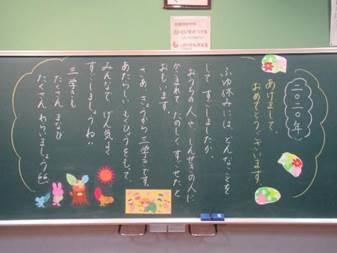 二〇二〇年
あけまして、
おめでとうございます
ふゆ休みには、どんなことを
して、すごしましたか。
おうちの人や、しんせきの人に
かこまれて、たのしく、すごせたと
おもいます。
さあ、きょうから三学きです。
あたらしい もくひょうをもって、
みんなで、げん気よく
すごしましょうね!!
三学きも
たくさん まなび
たくさん わらいましょう